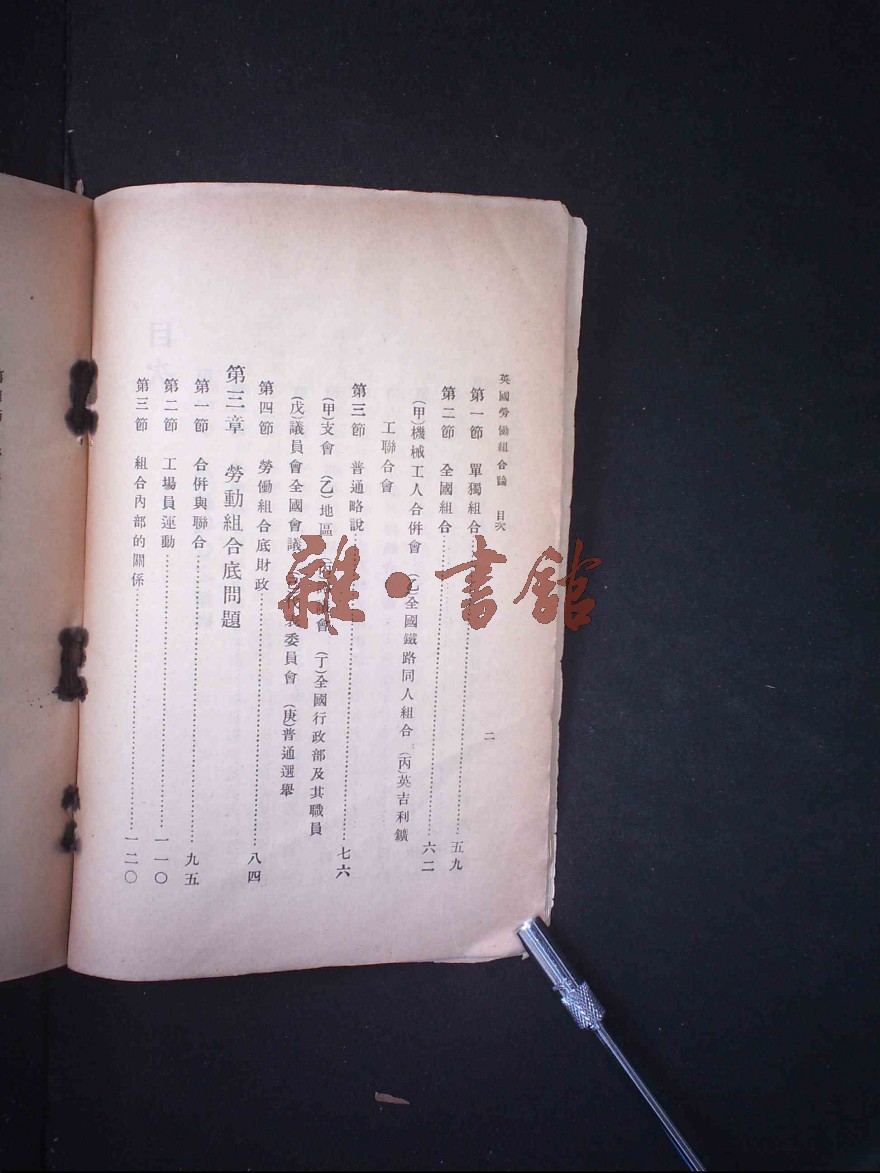 英國勞働組合論 目次
二
第一節 單獨組合……五九
第二節 全國組合……六二
(甲)機械工人合併會 (乙)全國鐵路同人組合 (丙)英吉利鑛
工聯合會
第三節 普通略說……七六
(甲)支會 (乙)地區 會 (丁)全國行政部及其職員
(戊)議員會全國會議 委員會 (庚)普通選舉
第四節 勞働組合底財政……八四
第三章 勞動組合底問題
第一節 合併與聯合……九五
第二節 工場員運動……一一〇
第三節 組合內部的關係……一二〇
雜·書館